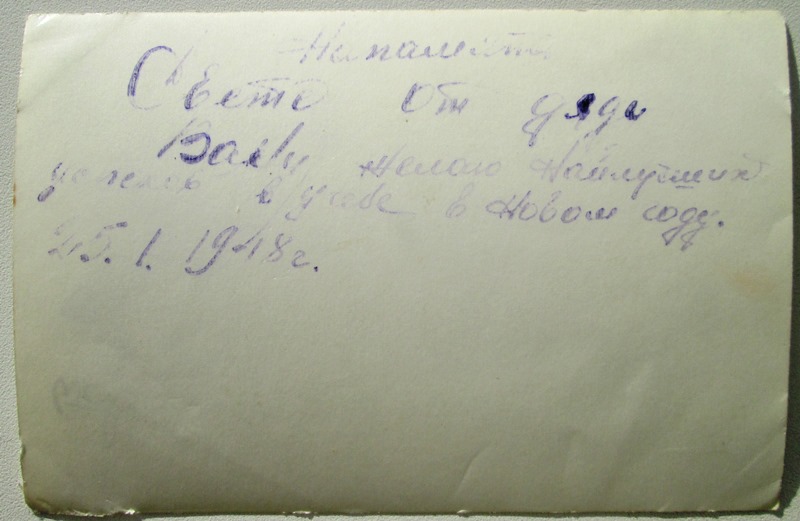 На память
Свете от дяди
Вани Желаю Наилутших
успехов в учебе в Новом году.
25. 1. 1948 г.